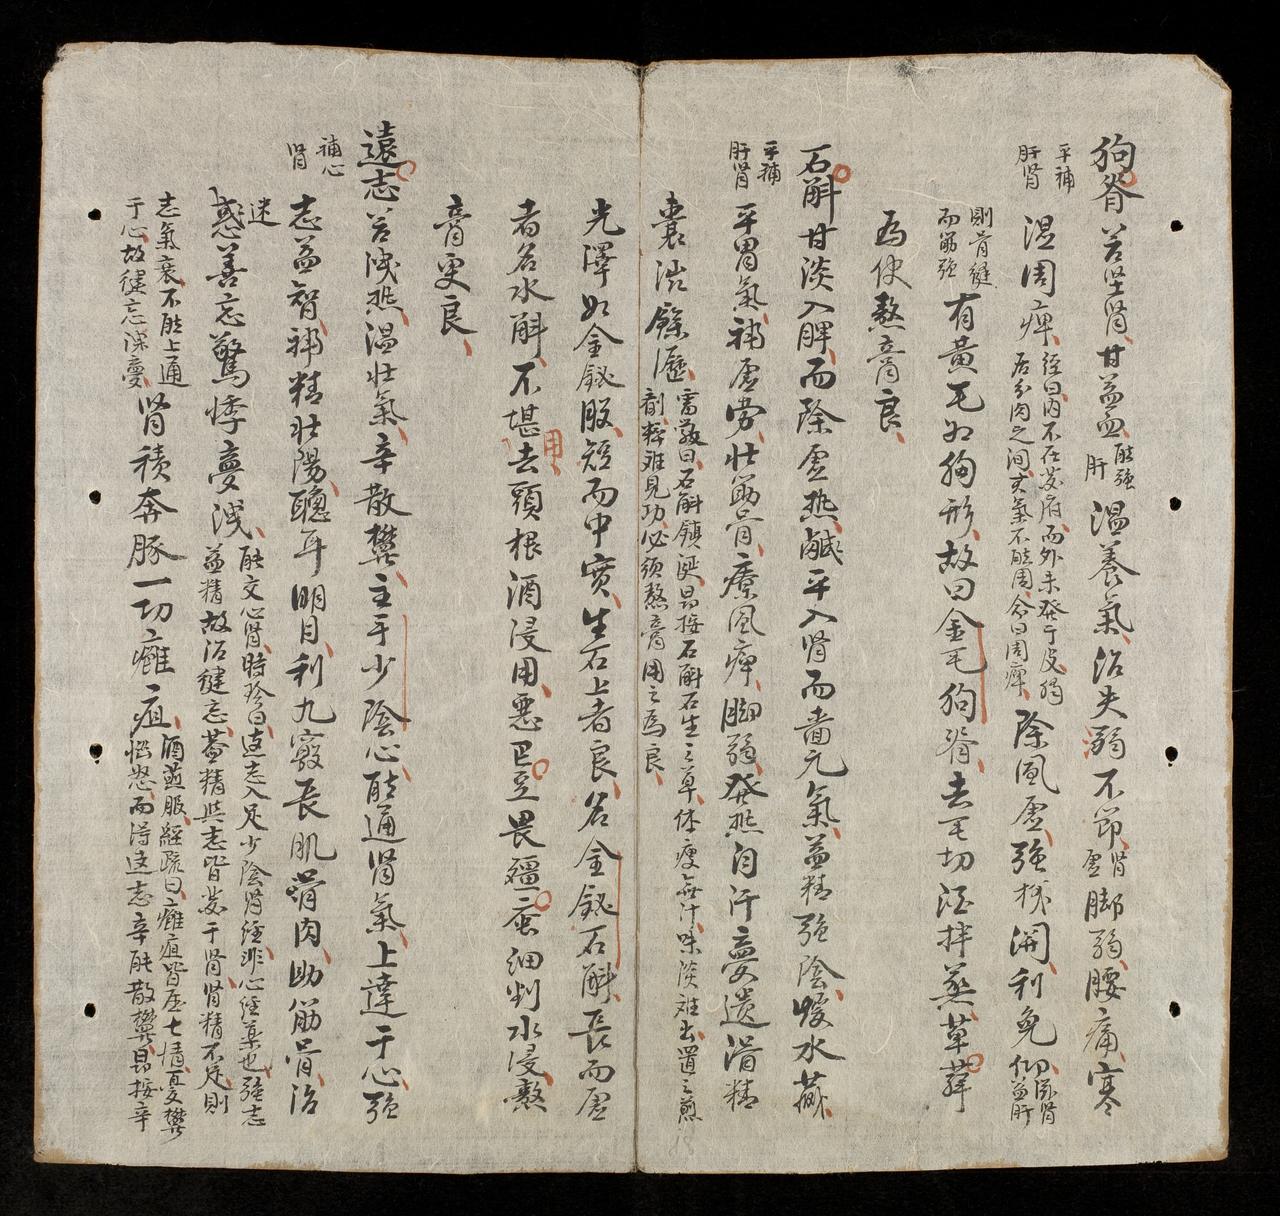 狗脊苦坚肾、甘益血、能强肝温養氣、治失溺不節、肾虛脚弱、腰痛、寒
平補肝肾
温周痺、經曰、內不在臟府、而外未發于皮、獨居分肉之间、真氣不能周、命曰周痺、除風虛、强機関、利免仰、滋肾益肝
則骨健而筋强有黄毛如狗形、故曰金毛狗脊、去毛切酒拌蒸、草薢
為使熬膏良、
石斛甘淡入脾、而除虛热、鹹平入肾而嗇元氣、益精强陰暖水藏、
平補肝肾
平胃氣、補虛劳、壮筋骨、療風痺、脚弱、發热自汗、夢遺滑精
囊澁餘瀝、雷敩曰、石斛鎮涎、昂按、石斛石生之草、体瘦無汁、味淡难出、置之煎劑、粹难見功、必須熬膏用之為良、
光澤如金釵、股短而中实、生石上者良、名金釵石斛、長而虛
者名水斛、不堪用、去頭根酒浸用、惡巴豆畏殭蚕、细剉水浸、熬
膏更良、
遠志苦泄热、温壮氣、辛散欝、主手少陰心、能通肾氣、上達于心、强
補心肾
志益智、補精壮陽、聰耳明目、利九竅、長肌滑肉、助筋骨、治
迷惑善忘、驚悸夢洩、能交心肾、時珍曰、遠志入足少陰肾經、非心經藥也、强志益精、故治健忘、蓋精與志皆藏于肾、肾精不足、則
志氣衰、不能上通于心、故健忘深夢、肾積奔豚、一切癰疽、酒蒸服、經疏曰、癰疽皆屬七情、憂欝惱怒、而淂遠志辛能散欝、昂按辛